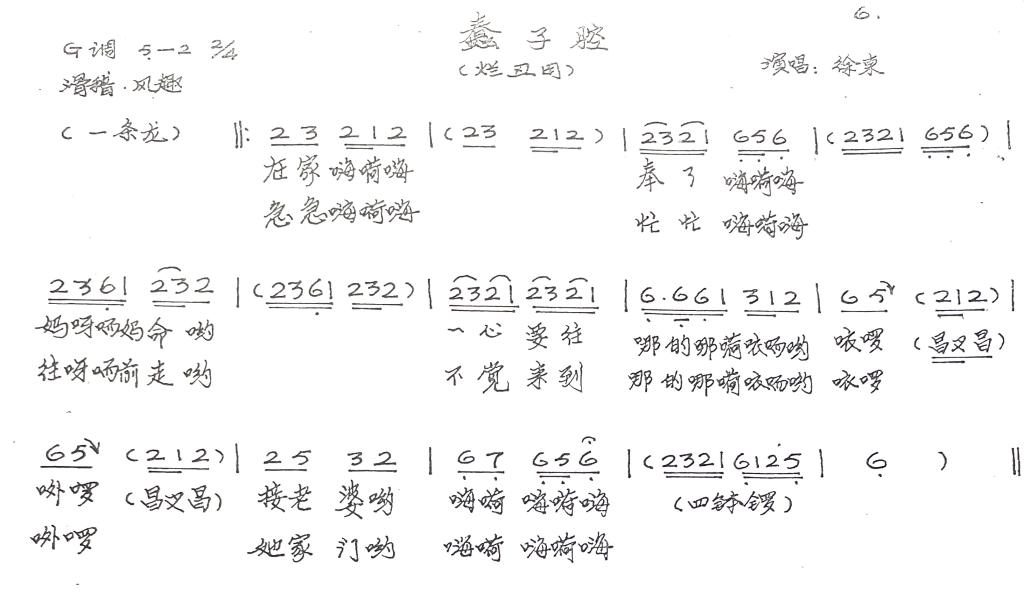 6.
蠢子腔
G调 5—2 2/4
(烂丑用)
演唱：徐東
滑稽.风趣
(一条龙) ‖: 23 212 | (23 212) | 2321 656 | (2321 656) |
在家嗨嗬嗨 奉了 嗨嗬嗨
急急嗨嗬嗨 忙忙 嗨嗬嗨
2361 232 | (2361 232) | 2321 2321 | 6.661 312 | 65 (212) |
妈呀哂妈命哟 一心要往 哪的那嗬咴哂哟 咴啰 (昌又昌)
往呀哂前走哟 不觉来到 那的那嗬咴哂哟 咴啰
65 (212) | 25 32 | 67 656 | (2321 6125 | 6 ) ‖
咿啰 (昌又昌) 接老婆哟 嗨嗬 嗨嗬嗨 (四钵锣)
咿啰 她家门哟 嗨嗬 嗨嗬嗨